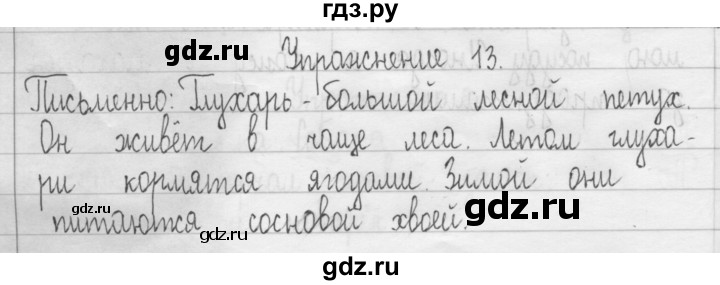 гдз.ру
gdz.ru
Упражнение 13.
Письменно: Глухарь - большой лесной петух.
Он живёт в чаще леса. Летом глуха-
ри кормятся ягодами. Зимой они
питаются сосновой хвоей.
gdz.ru
gdz.ru
gdz.ru
gdz.ru